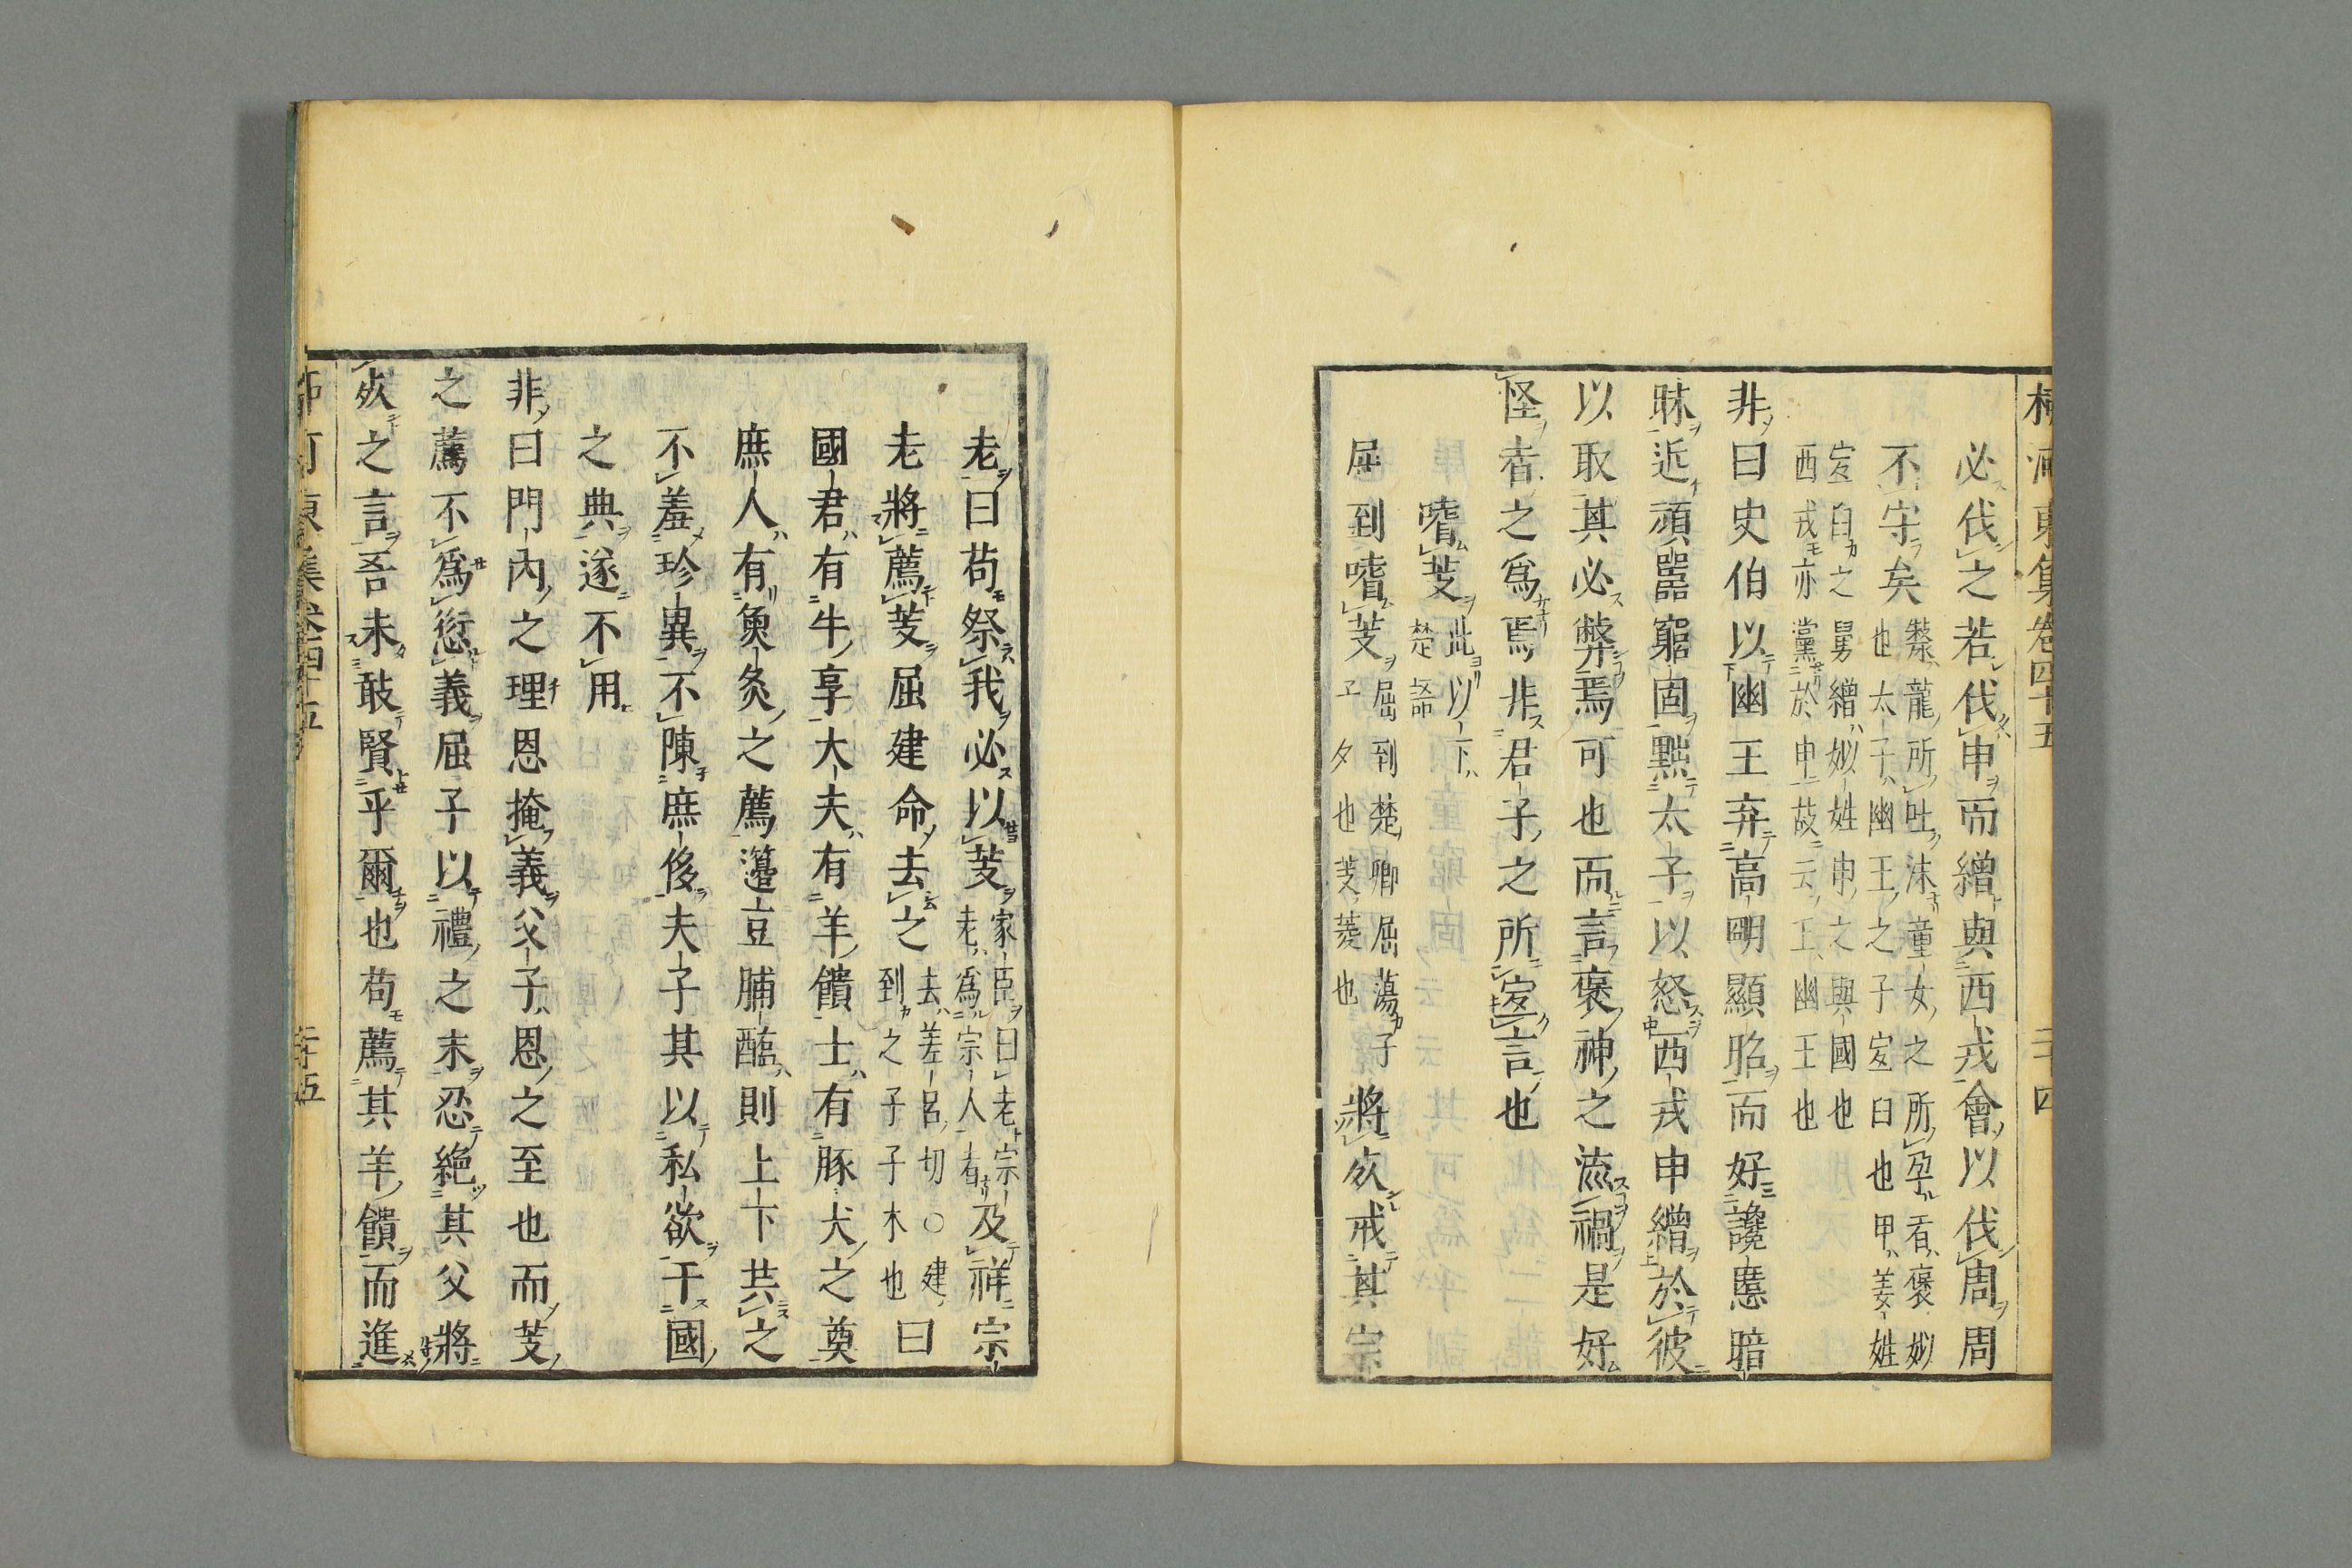 柳河東集卷四十五 二十四
必伐之若伐申而繒與西戎會以伐周周
不守矣 漦龍所吐沫童女之所孕者褒姒
也太子幽王之子宜臼也申姜姓
宜臼之舅繒姒姓申之與國也
西戎亦黨於申故云王幽王也
非曰史伯以幽王弃高明顯昭而好讒慝暗
昧近頑嚚窮固黜太子以怒西戎申繒於彼
以取其必弊焉可也而言褒神之流禍是好
怪者之爲焉非君子之所宜言也
嗜芰 此以下
楚語
屈到嗜芰 屈到楚卿屈蕩子
夕也芰菱也
將死戒其宗
老曰苟祭我必以芰 家臣曰老宗
老爲宗人者
及祥宗
老將薦芰屈建命去之 去差呂切○建
到之子子木也
曰
國君有牛享大夫有羊饋士有豚犬之奠
庶人有魚炙之薦籩豆脯醢則上下共之
不羞珍異不陳庶侈夫子其以私欲干國
之典遂不用
非曰門內之理恩掩義父子恩之至也而芰
之薦不爲愆義屈子以禮之末忍絶其父將
死之言吾未敢賢乎爾也苟薦其羊饋而進